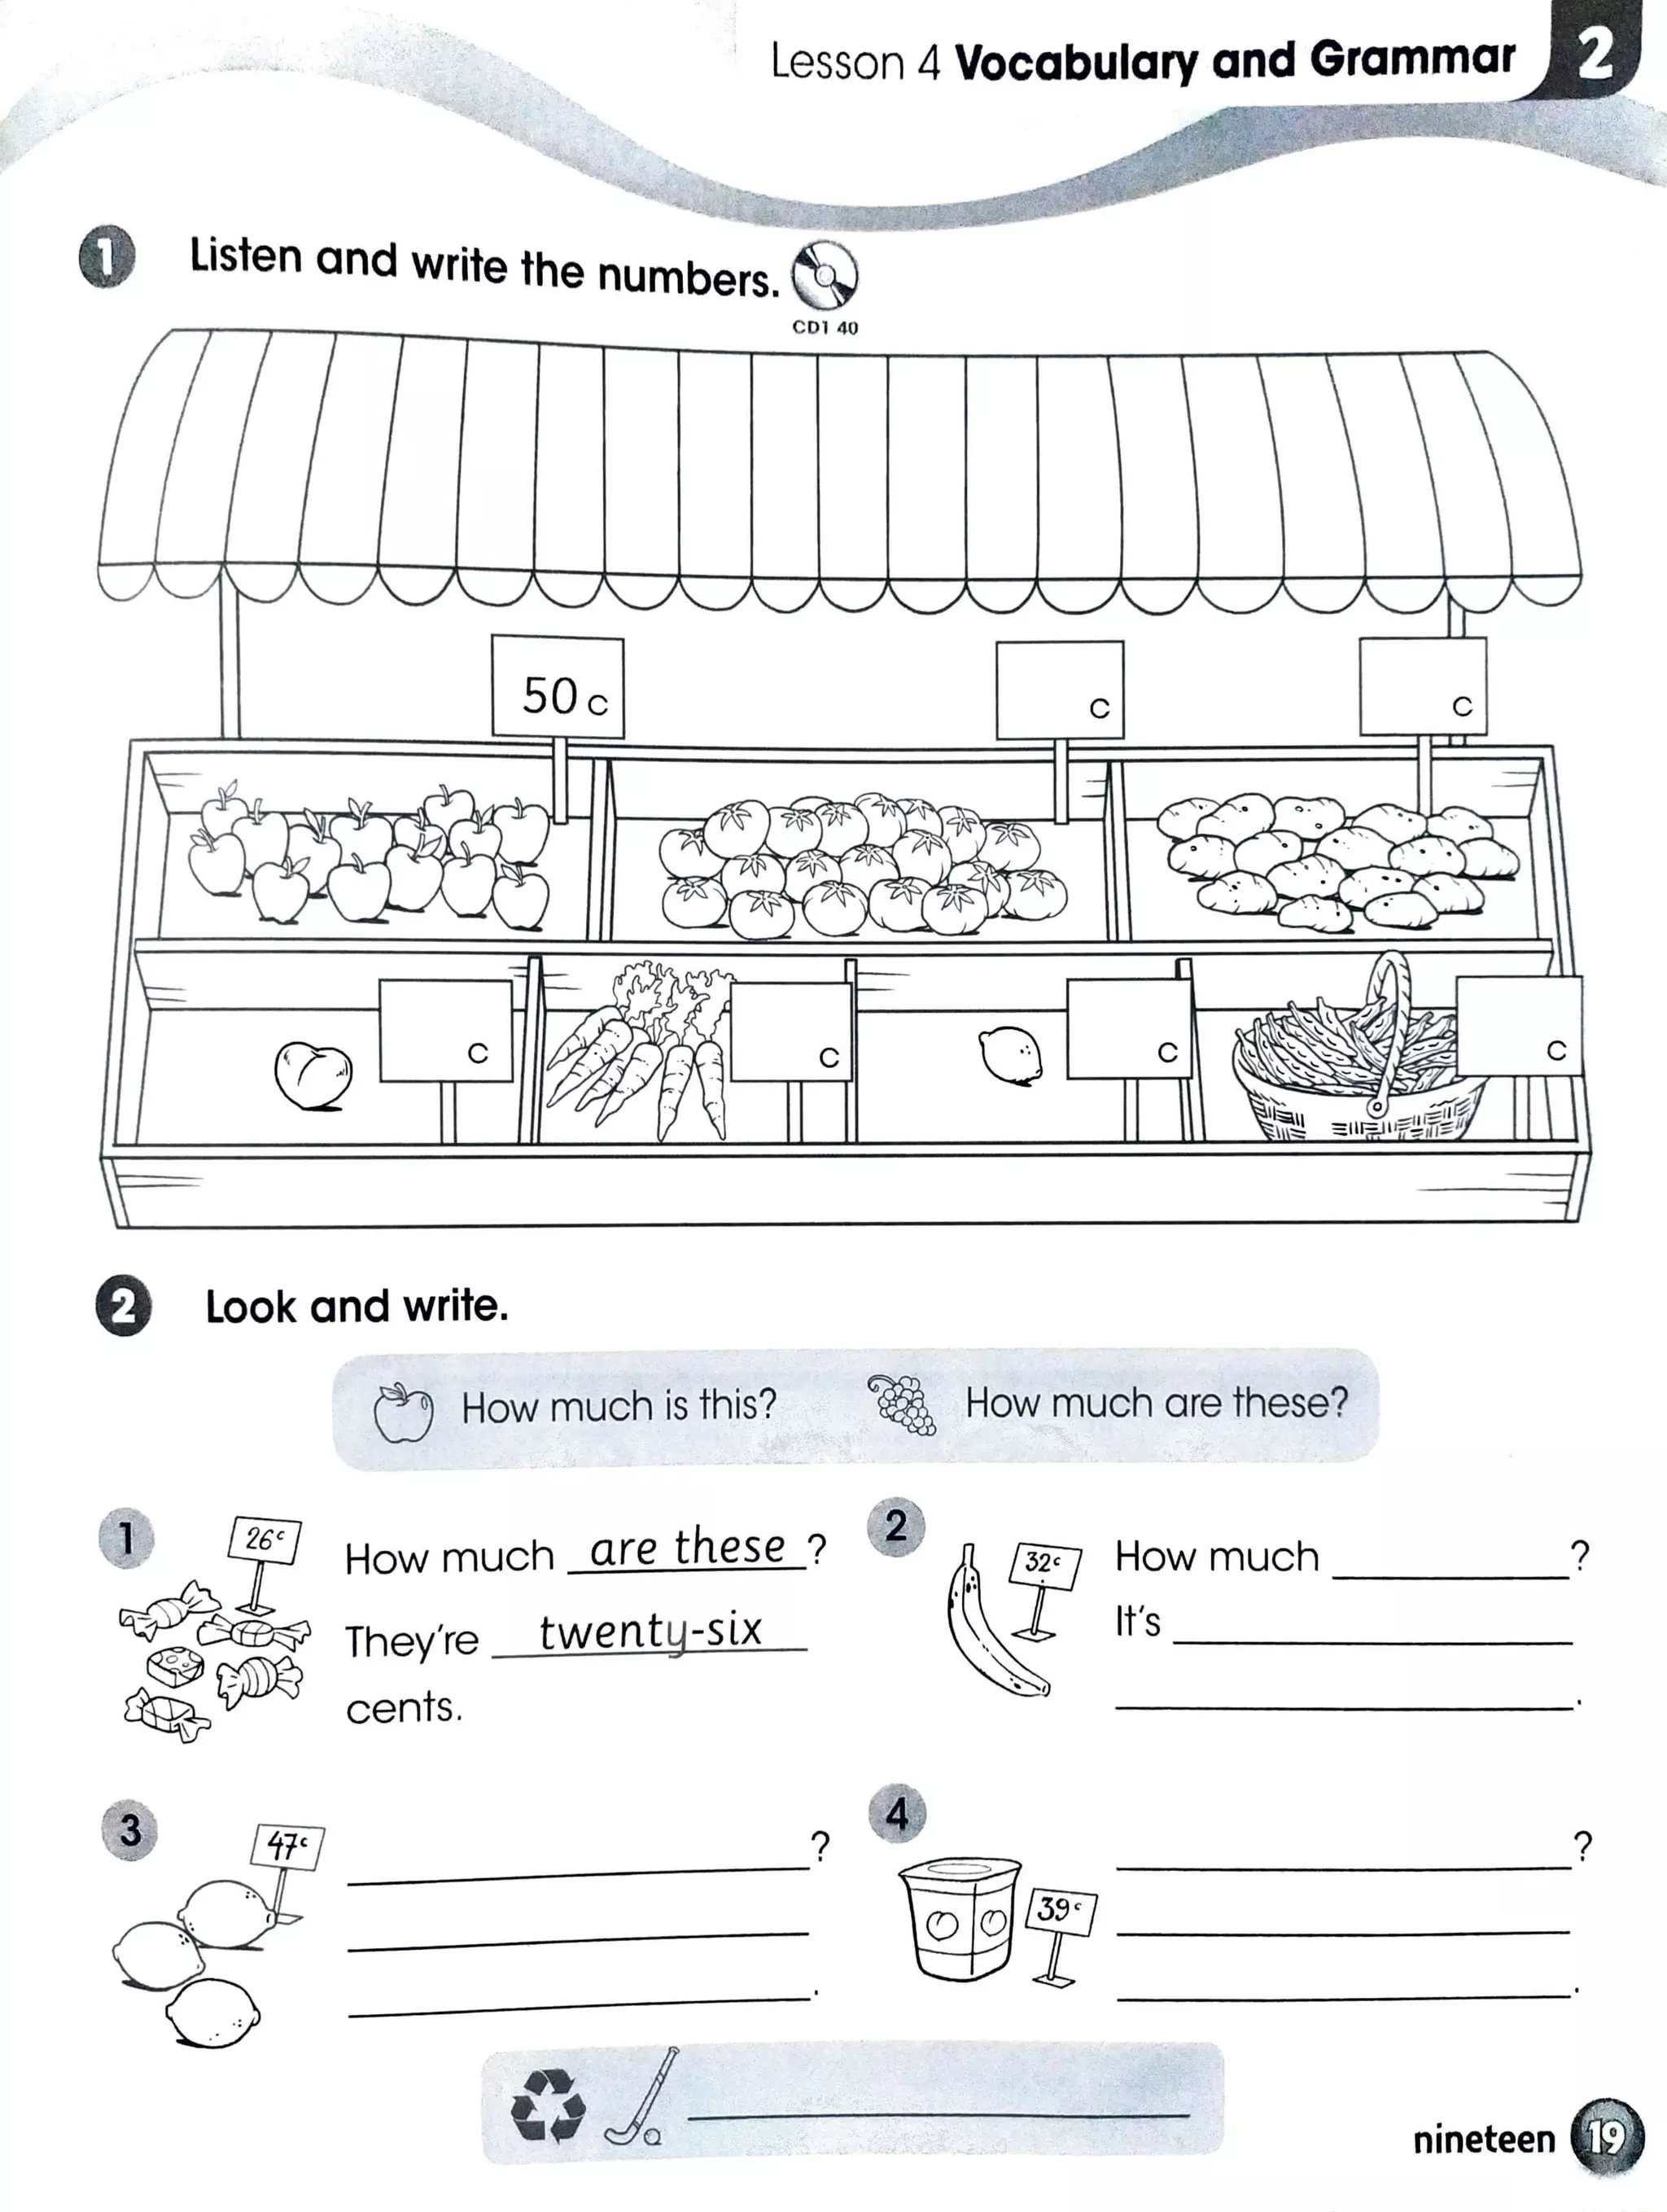 Lesson 4 Vocabulary and Grammar 2
1 Listen and write the numbers.
CD1 40
50 c
c
c
c
c
c
c
2 Look and write.
How much is this? How much are these?
1
26c
How much are these ?
They're twenty-six
cents.
2
32c
How much ?
It's
.
3
47c
?
.
4
39c
?
.
nineteen 19